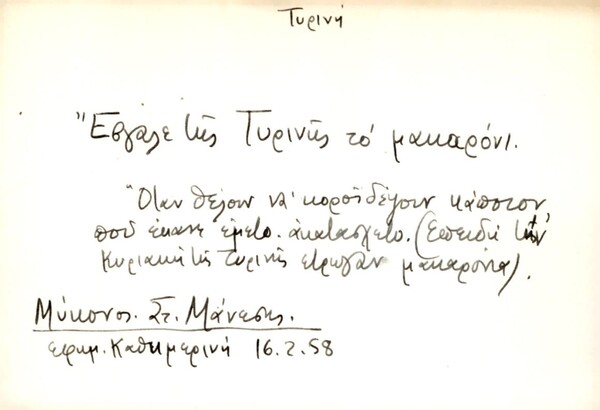 Τυρινή
Ἔβγαλε τῆς Τυρινῆς τό μακαρόνι.
Ὅταν θέλουν νά κοροϊδέψουν κάποιον
πού ἔκανε ἐμετό ἀκατάσχετο. (Ἐπειδή τήν
Κυριακή τῆς Τυρινῆς ἔτρωγαν μακαρόνια).
Μύκονος. Στ. Μάνεσης.
ἐφημ. Καθημερινή 16.2.58